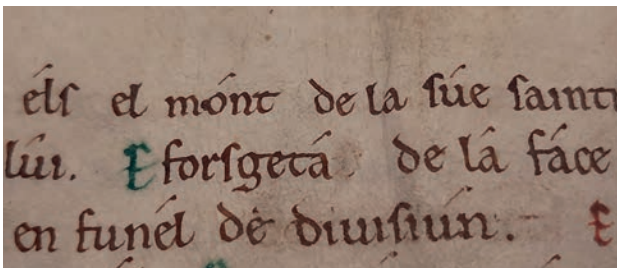 éls el mónt de la súe sainti
lúi. E forsgetá de lá fáce
en funél dé diuisiún. E